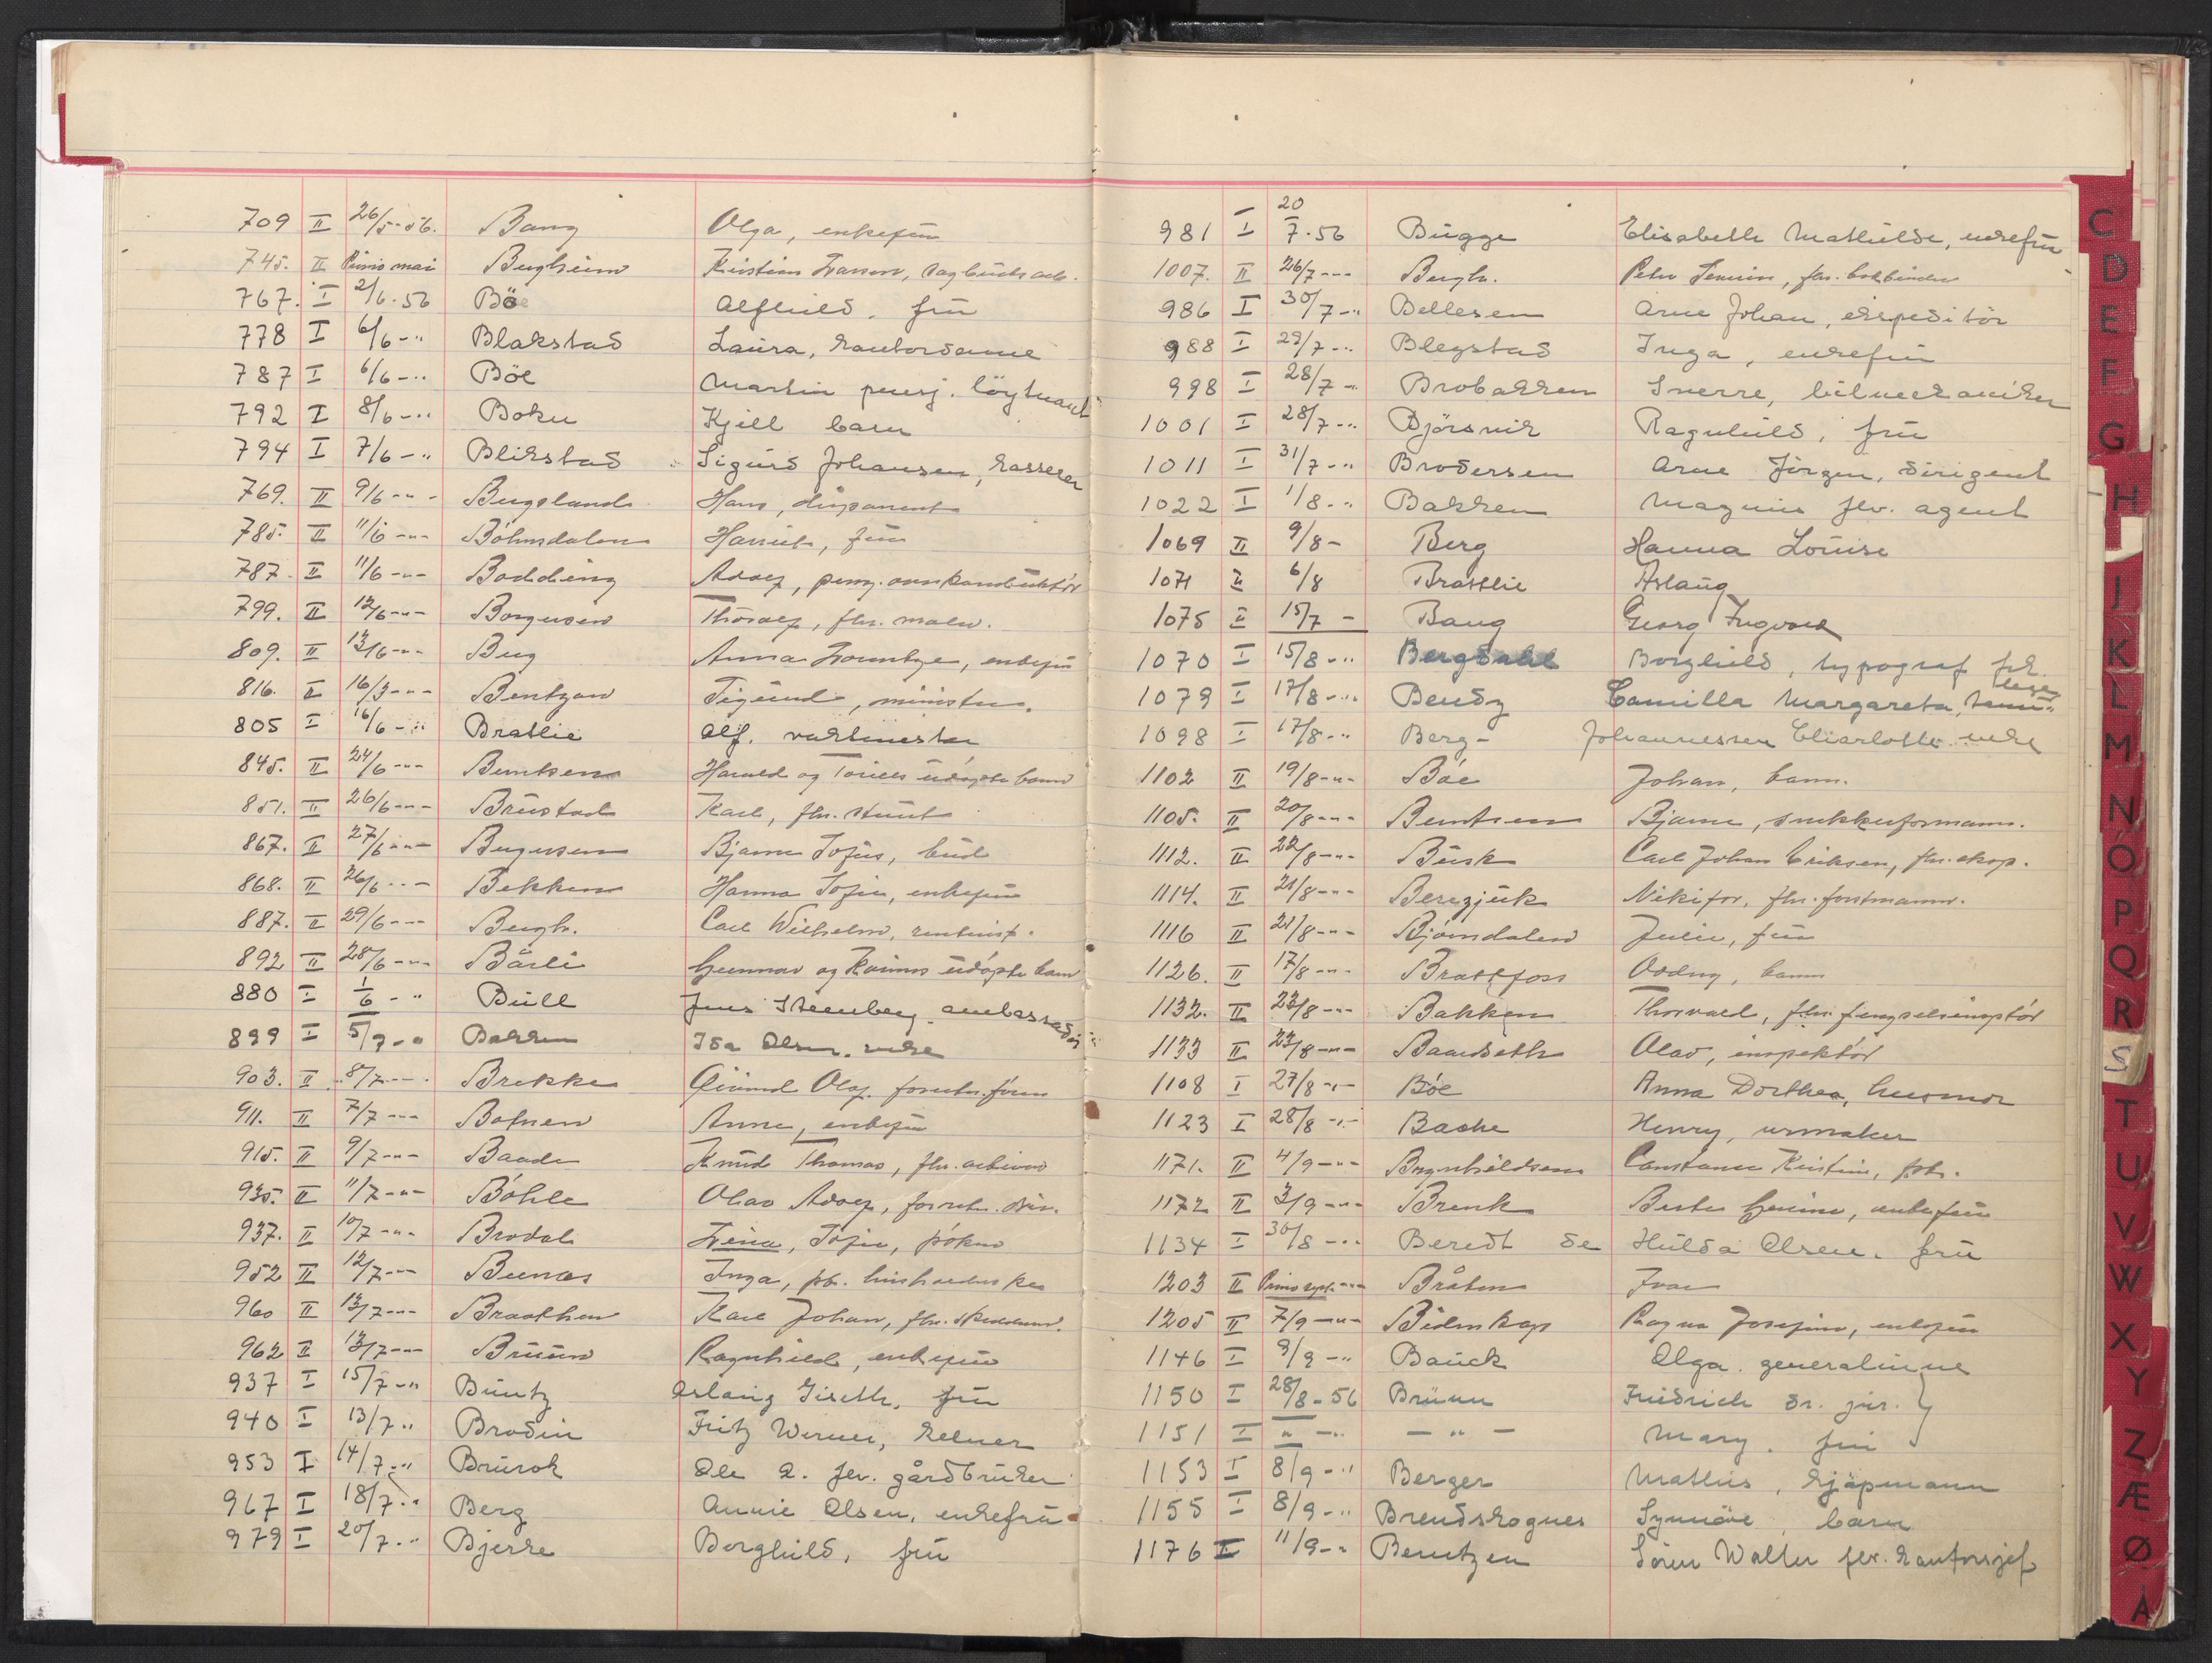 709 II 26/5-56. Bang Olga, enkefrü
745. II Primo mai Bergheim Kristian Larsen, sagbruksarb.
767. I 2/6.56 Böe Alfhild. frü
778 I 6/6-" Blakstad Laura, kontordame
787 I 6/6-" Böe Martin pensj. löytnant
792 I 8/6-" Boku Kjell barn
794 I 7/6-" Blikstad Sigurd Johansen, kasserer
769. II 9/6-"- Bergsland Hans, disponent
785. II 11/6-"- Böhmdalen Harriet, frü
787. II 11/6-"- Bodding Adolf, pens. overkonduktör
799. II 12/6-"- Borgersen Thoralf, fhv. maler.
809. II 13/6-"- Berg Anna Lountzje, enkefrü
816. II 16/3-"- Bentzon Sigurd, minister.
805 I 16/6-" Bratlie Alf. vaktmester
845. II 24/6-"- Berntsen Harald og Torills üdöpte barn
851. II 26/6-"- Brustad Karl, fhv.
867. II 27/6-"- Bergersen Bjarne Sofus, büd
868. II 26/6-"- Bekken Hanna Sofie, enkefrü
887. II 29/6-"- Bergh. Carl Wilhelm,
892 II 28/6-"- Bårli Gunnar og Karins üdöpte barn
880 I 1/6-" Büll Jens Steenberg. ambassadör
899 I 5/7-" Bakken Ida Olsen. enke
903. II 8/7-"- Brekke Eivind Olaf. forretn.förer
911. II 7/7-"- Botnen Anne, enkefrü
915. II 9/7-"- Baade Knüd Thomas, fhv. arkivar
935. II 11/7-"- Böhle Olav Adolf, forretn. driv.
937. II 10/7-"- Brodal Lina, Sofie, fröken
952 II 12/7-"- Bernås Inga, fhv. hüsholderske
960 II 13/7-"- Braathen Karl Johan, fhv.
962 II 13/7-"- Bruun Ragnhild, enkefrü
937 I 15/7-" Büntz Aslaüg Giseth, frü
940 I 13/7-" Brodin Fritz Werner, kelner
953 I 14/7-" Brürok Ole A. fhv. gårdbrüker
967 I 18/7-" Berg Annie Olsen, enkefrü
979 I 20/7-" Bjerke Borghild, frü
981 I 20/7-56 Bügge Elisabeth Mathilde, enkefrü
1007. II 26/7-"- Bergh. Peter Severin, fhv. bokbinder
986 I 30/7-" Bellesen Arne Johan, ekspeditör
988 I 29/7-" Blegstad Inga, enkefrü
998 I 28/7-" Brobakken Sverre, bilmekaniker
1001 I 28/7-" Björsvik Ragnhild, frü
1011 I 31/7-" Brodersen Arne Jörgen, dirigent
1022 I 1/8-" Bakken Magnus fhv. agent
1069 II 9/8- Berg Hanna Louise
1071 II 6/8 Brattlie Aslaüg
1075 II 15/7- Baug Georg Ingvald
1070 I 15/8-" Bergdahl Borghild, typograf frk.
1079 I 17/8-" Bendz Camilla Margareta, tannlege
1098 I 17/8-" Berg- Johannessen Charlotte enke
1102 II 19/8-"- Böe Johan, barn.
1105. II 20/8-"- Berntsen Bjarne, snekkerformann.
1112. II 22/8-"- Büsk Carl Johan Eriksen, fhv. eksp.
1114. II 21/8-"- Berezjuk Nikifor, fhv. forstmann.
1116 II 21/8-"- Björndalen Julie, frü
1126. II 17/8-"- Brattfoss Oddny, barn
1132. II 23/8-"- Bakken Thorvald, fhv. fengselsinspektör
1133 II 23/8-"- Baardseth Olav, inspektör
1108 I 27/8-" Böe Anna Dorthea, husmor
1123 I 28/8-" Bache Henry, urmaker
1171. II 4/9-"- Brynhildsen Constance Kristine, frk.
1172 II 3/9-"- Brenk Berta Gurine, enkefrü
1134 I 30/8-" Beredt de Hülda Olsen. frü
1203 II Primo sept.-"- Bråten Ivar
1205 II 7/9-"- Bidenkap Ragna Josefine, enkefrü
1146 I 9/9-" Baück Olga. generalinne
1150 I 28/8-56 Brünn Friedrich dr. jür. }
1151 I " -" - " - Mary. frü
1153 I 8/9-" Berger Mathis, kjöpmann
1155 I 8/9-" Brendskognes Synnöve, barn
1176 I 11/9-" Berntzen Sören Walter fhv. kontorsjef
C
D
E
F
G
H
I
J
K
L
M
N
O
P
Q
R
S
T
U
V
W
X
Y
Z
Æ
Ø
Å